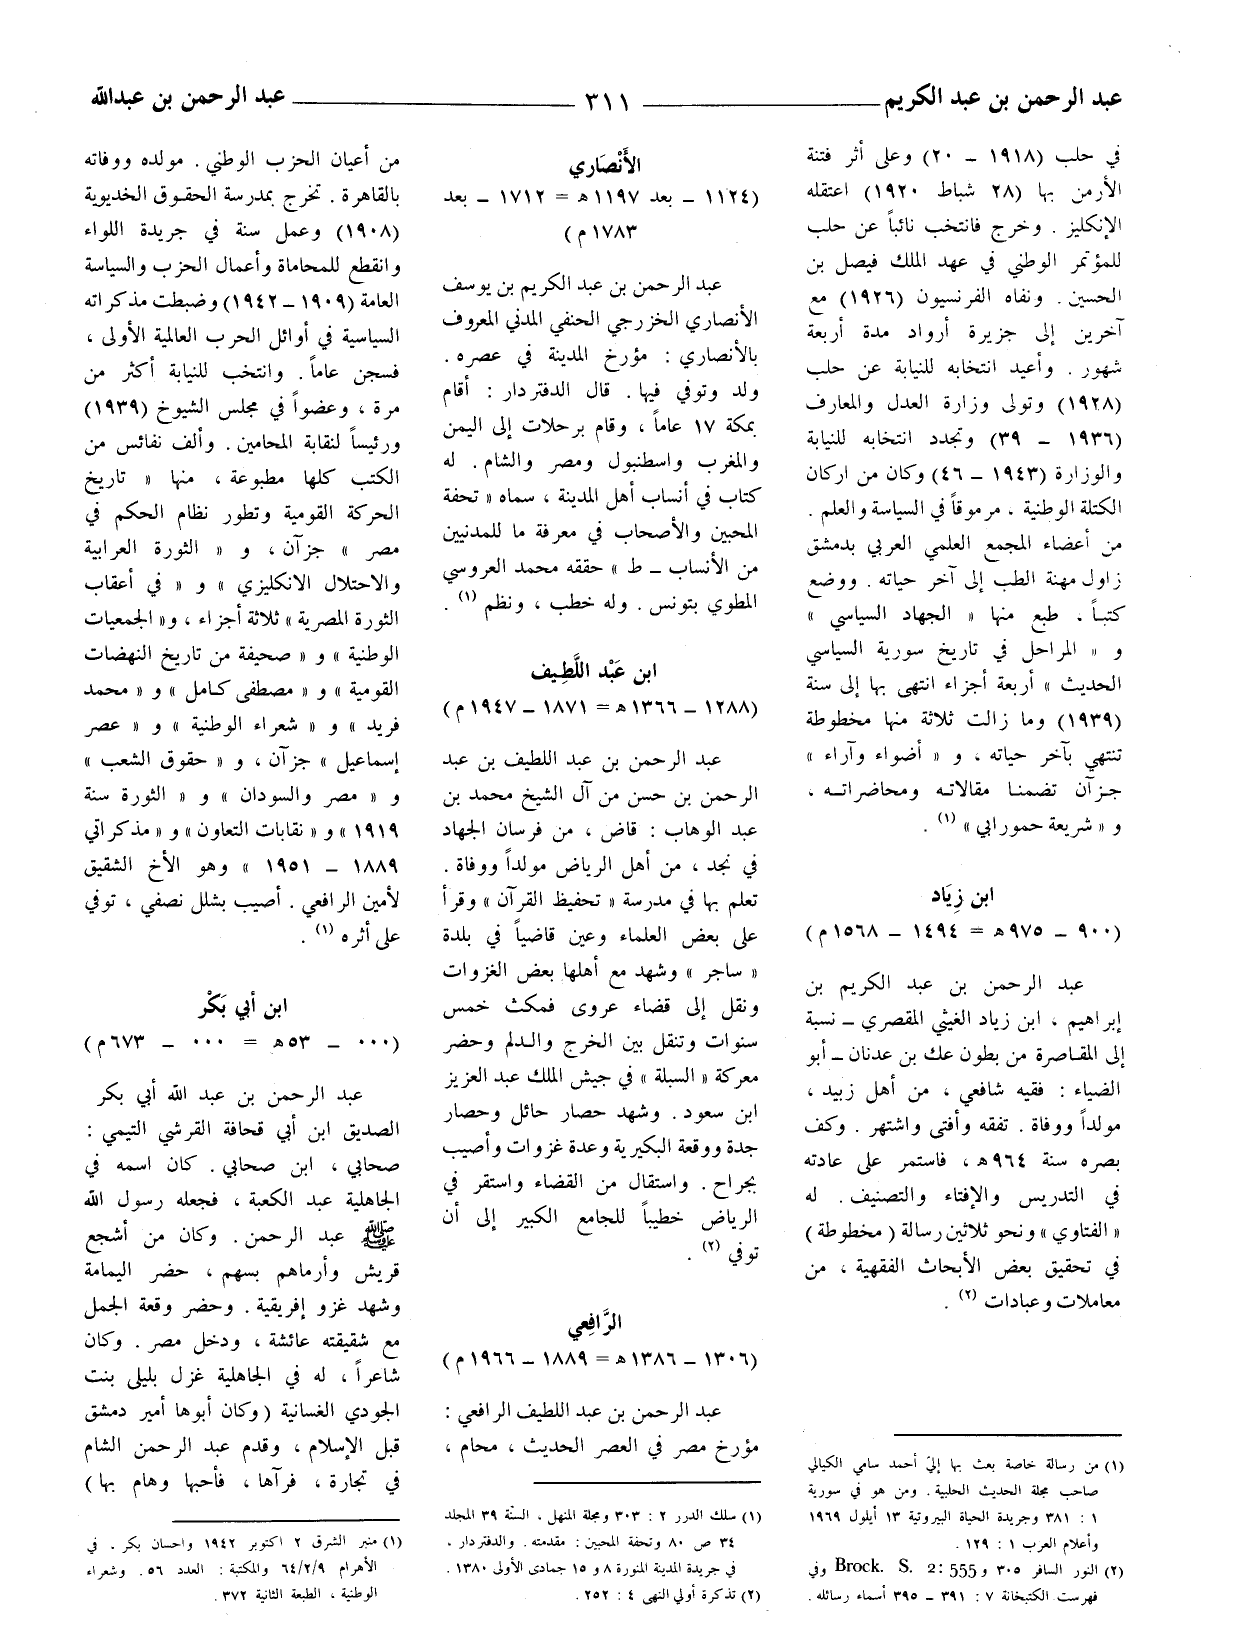 عبد الرحمن بن عبد الكريم ٣١١ عبد الرحمن بن عبدالله
في حلب (١٩١٨ – ٢٠) وعلى أثر فتنة
الأرمن بها (٢٨ شباط ١٩٢٠) اعتقله
الإنكليز . وخرج فانتخب نائباً عن حلب
للمؤتمر الوطني في عهد الملك فيصل بن
الحسين . ونفاه الفرنسيون (١٩٢٦) مع
آخرين إلى جزيرة أرواد مدة أربعة
شهور . وأعيد انتخابه للنيابة عن حلب
(١٩٢٨) وتولى وزارة العدل والمعارف
(١٩٣٦ – ٣٩) وتجدد انتخابه للنيابة
والوزارة (١٩٤٣ – ٤٦) وكان من اركان
الكتلة الوطنية ، مرموقاً في السياسة والعلم .
من أعضاء المجمع العلمي العربي بدمشق
زاول مهنة الطب إلى آخر حياته . ووضع
كتباً ، طبع منها « الجهاد السياسي »
و « المراحل في تاريخ سورية السياسي
الحديث » أربعة أجزاء انتهى بها إلى سنة
(١٩٣٩) وما زالت ثلاثة منها مخطوطة
تنتهي بآخر حياته ، و « أضواء وآراء »
جزآن تضمنا مقالاته ومحاضراته ،
و « شريعة حمورابي » (١) .
ابن زِيَاد
(٩٠٠ – ٩٧٥ ه = ١٤٩٤ – ١٥٦٨ م)
عبد الرحمن بن عبد الكريم بن
إبراهيم ، ابن زياد الغيثي المقصري – نسبة
إلى المقاصرة من بطون عك بن عدنان – أبو
الضياء : فقيه شافعي ، من أهل زبيد ،
مولداً ووفاة . تفقه وأفتى واشتهر . وكف
بصره سنة ٩٦٤ ه ، فاستمر على عادته
في التدريس والإفتاء والتصنيف . له
« الفتاوي » ونحو ثلاثين رسالة ( مخطوطة )
في تحقيق بعض الأبحاث الفقهية ، من
معاملات وعبادات (٢) .
(١) من رسالة خاصة بعث بها إليّ أحمد سامي الكيالي
صاحب مجلة الحديث الحلبية . ومن هو في سورية
١ : ٣٨١ وجريدة الحياة البيروتية ١٣ أيلول ١٩٦٩
وأعلام العرب ١ : ١٢٩ .
(٢) النور السافر ٣٠٥ و Brock. S. 2: 555 وفي
فهرست الكتبخانة ٧ : ٣٩١ – ٣٩٥ أسماء رسائله .
الأَنْصَاري
(١١٢٤ – بعد ١١٩٧ ه = ١٧١٢ – بعد
١٧٨٣ م)
عبد الرحمن بن عبد الكريم بن يوسف
الأنصاري الخزرجي الحنفي المدني المعروف
بالأنصاري : مؤرخ المدينة في عصره .
ولد وتوفي فيها . قال الدفتردار : أقام
بمكة ١٧ عاماً ، وقام برحلات إلى اليمن
والمغرب واسطنبول ومصر والشام . له
كتاب في أنساب أهل المدينة ، سماه « تحفة
المحبين والأصحاب في معرفة ما للمدنيين
من الأنساب – ط » حققه محمد العروسي
المطوي بتونس . وله خطب ، ونظم (١) .
ابن عَبْد اللَّطِيف
(١٢٨٨ – ١٣٦٦ ه = ١٨٧١ – ١٩٤٧ م)
عبد الرحمن بن عبد اللطيف بن عبد
الرحمن بن حسن من آل الشيخ محمد بن
عبد الوهاب : قاض ، من فرسان الجهاد
في نجد ، من أهل الرياض مولداً ووفاة .
تعلم بها في مدرسة « تحفيظ القرآن » وقرأ
على بعض العلماء وعين قاضياً في بلدة
« ساجر » وشهد مع أهلها بعض الغزوات
ونقل إلى قضاء عروى فمكث خمس
سنوات وتنقل بين الخرج والدلم وحضر
معركة « السبلة » في جيش الملك عبد العزيز
ابن سعود . وشهد حصار حائل وحصار
جدة ووقعة البكيرية وعدة غزوات وأصيب
بجراح . واستقال من القضاء واستقر في
الرياض خطيباً للجامع الكبير إلى أن
توفي (٢) .
الرَّافِعي
(١٣٠٦ – ١٣٨٦ ه = ١٨٨٩ – ١٩٦٦ م)
عبد الرحمن بن عبد اللطيف الرافعي :
مؤرخ مصر في العصر الحديث ، محام ،
(١) سلك الدرر ٢ : ٣٠٣ ومجلة المنهل ، السنّة ٣٩ المجلد
٣٤ ص ٨٠ وتحفة المحبين : مقدمته . والدفتردار ،
في جريدة المدينة المنورة ٨ و ١٥ جمادى الأولى ١٣٨٠ .
(٢) تذكرة أولي النهى ٤ : ٢٥٢ .
من أعيان الحزب الوطني . مولده ووفاته
بالقاهرة . تخرج بمدرسة الحقوق الخديوية
(١٩٠٨) وعمل سنة في جريدة اللواء
وانقطع للمحاماة وأعمال الحزب والسياسة
العامة (١٩٠٩ – ١٩٤٢) وضبطت مذكراته
السياسية في أوائل الحرب العالمية الأولى ،
فسجن عاماً . وانتخب للنيابة أكثر من
مرة ، وعضواً في مجلس الشيوخ (١٩٣٩)
ورئيساً لنقابة المحامين . وألف نفائس من
الكتب كلها مطبوعة ، منها « تاريخ
الحركة القومية وتطور نظام الحكم في
مصر » جزآن ، و « الثورة العرابية
والاحتلال الانكليزي » و « في أعقاب
الثورة المصرية » ثلاثة أجزاء ، و« الجمعيات
الوطنية » و « صحيفة من تاريخ النهضات
القومية » و « مصطفى كامل » و « محمد
فريد » و « شعراء الوطنية » و « عصر
إسماعيل » جزآن ، و « حقوق الشعب »
و « مصر والسودان » و « الثورة سنة
١٩١٩ » و « نقابات التعاون » و « مذكراتي
١٨٨٩ – ١٩٥١ » وهو الأخ الشقيق
لأمين الرافعي . أصيب بشلل نصفي ، توفي
على أثره (١) .
ابن أبي بَكْر
(٠٠٠ – ٥٣ ه = ٠٠٠ – ٦٧٣ م)
عبد الرحمن بن عبد الله أبي بكر
الصديق ابن أبي قحافة القرشي التيمي :
صحابي ، ابن صحابي . كان اسمه في
الجاهلية عبد الكعبة ، فجعله رسول الله
ﷺ عبد الرحمن . وكان من أشجع
قريش وأرماهم بسهم ، حضر اليمامة
وشهد غزو إفريقية . وحضر وقعة الجمل
مع شقيقته عائشة ، ودخل مصر . وكان
شاعراً ، له في الجاهلية غزل بليلى بنت
الجودي الغسانية (وكان أبوها أمير دمشق
قبل الإسلام ، وقدم عبد الرحمن الشام
في تجارة ، فرآها ، فأحبها وهام بها )
(١) منبر الشرق ٢ اكتوبر ١٩٤٢ واحسان بكر . في
الأهرام ٦٤/٢/٩ والمكتبة : العدد ٥٦ . وشعراء
الوطنية ، الطبعة الثانية ٣٧٢ .